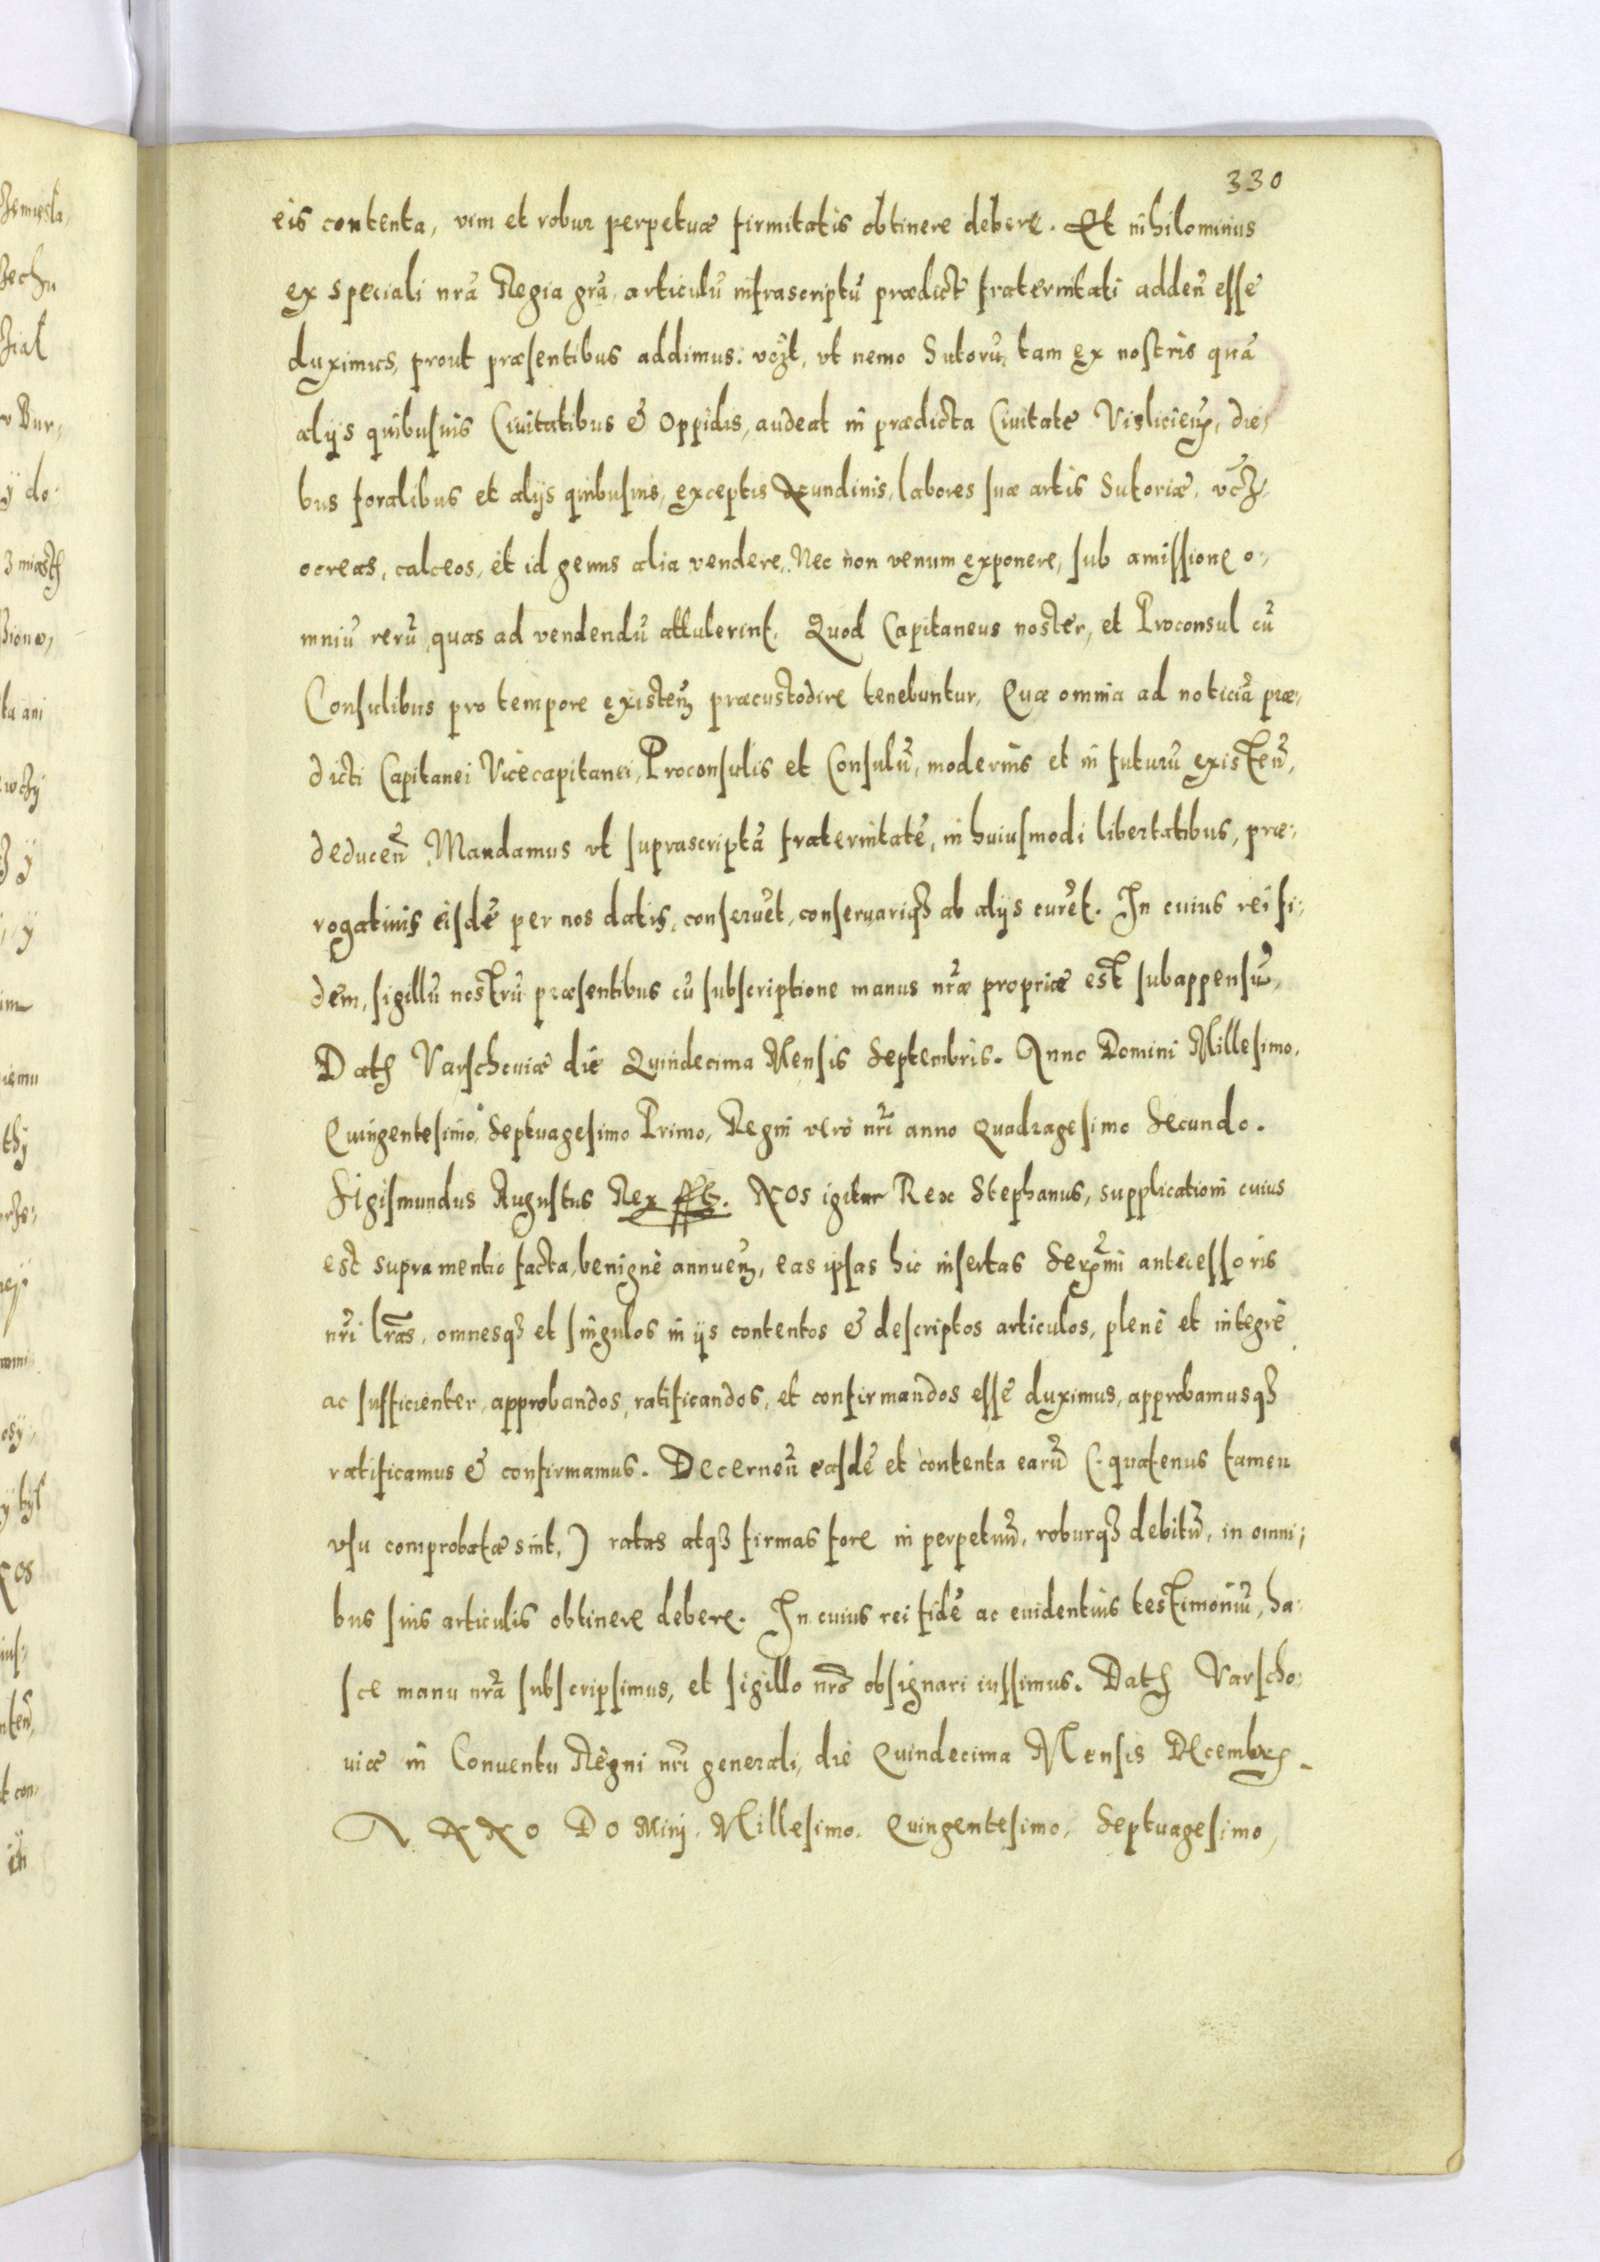 330
eis contenta, vim et robur perpetuæ firmitatis obtinere debere. Et nihilominus
ex speciali nrã Regia grã, articulũ infrascriptũ prædictẽ fraternitati addeñ esse
duximus, prout præsentibus addimus: vczt, vt nemo Sutorũ, tam ex nostris quã
alijs quibusuis Ciuitatibus & Oppidis, audeat in prædicta Ciuitate Vislicieñ, die,
bus foralibus et alijs quibusuis, exceptis Nundinis, labores suæ artis Sutoriæ, vcz,
ocreas, calceos, et id genus alia vendere, Nec non venum exponere, sub amissione o,,
mniũ rerũ, quas ad vendendũ attulerint. Quod Capitaneus noster, et Proconsul cũ
Consulibus pro tempore existeñ præcustodire tenebuntur, Quæ omnia ad noticiã præ,,
dicti Capitanei Vicecapitanei, Proconsulis et Consulũ, modernis et in futurũ existeñ,
deduceñ, Mandamus vt suprascriptã fraternitatẽ, in huiusmodi libertatibus, præ,,
rogatiuis eisdẽ per nos datis, conseruẽt, conseruariqз ab alijs curẽt. In cuius rei fi,,
dem, sigillũ nostrũ præsentibus cũ subscriptione manus nr̃æ propriæ est subappensũ,
Datɱ Varschouiæ die Quindecima Mensis Septembris. Anno Domini Millesimo,
Quingentesimo, Septuagesimo Primo, Regni verò nr̃i anno Quadragesimo Secundo.
Sigismundus Augustus Rex sst. Nos igitur Rex Stephanus, supplicationi cuius
est supra mentio facta, benignè annueñ, eas ipsas hic insertas Serx̃mi antecessoris
nr̃i lr̃as, omnesqз et singulos in ijs contentos & descriptos articulos, plenè et integrè
ac sufficienter, approbandos, ratificandos, et confirmandos esse duximus, approbamusqз
ratificamus & confirmamus. Decerneñ easdẽ et contenta earũ (: quatenus tamen
vsu comprobatæ sint,) ratas atqз firmas fore in perpetuũ, roburqз debitũ, in omni,
bus suis articulis obtinere debere. In cuius rei fidẽ ac euidentius testimoniũ, ha,
sce manu nr̃a subscripsimus, et sigillo nr̃o obsignari iussimus. Datɱ Varscho,
uiæ in Conuentu Regni nr̃i generali, die Quindecima Mensis Decembrꝭ.
ANNO DOMinj, Millesimo, Quingentesimo, Septuagesimo,